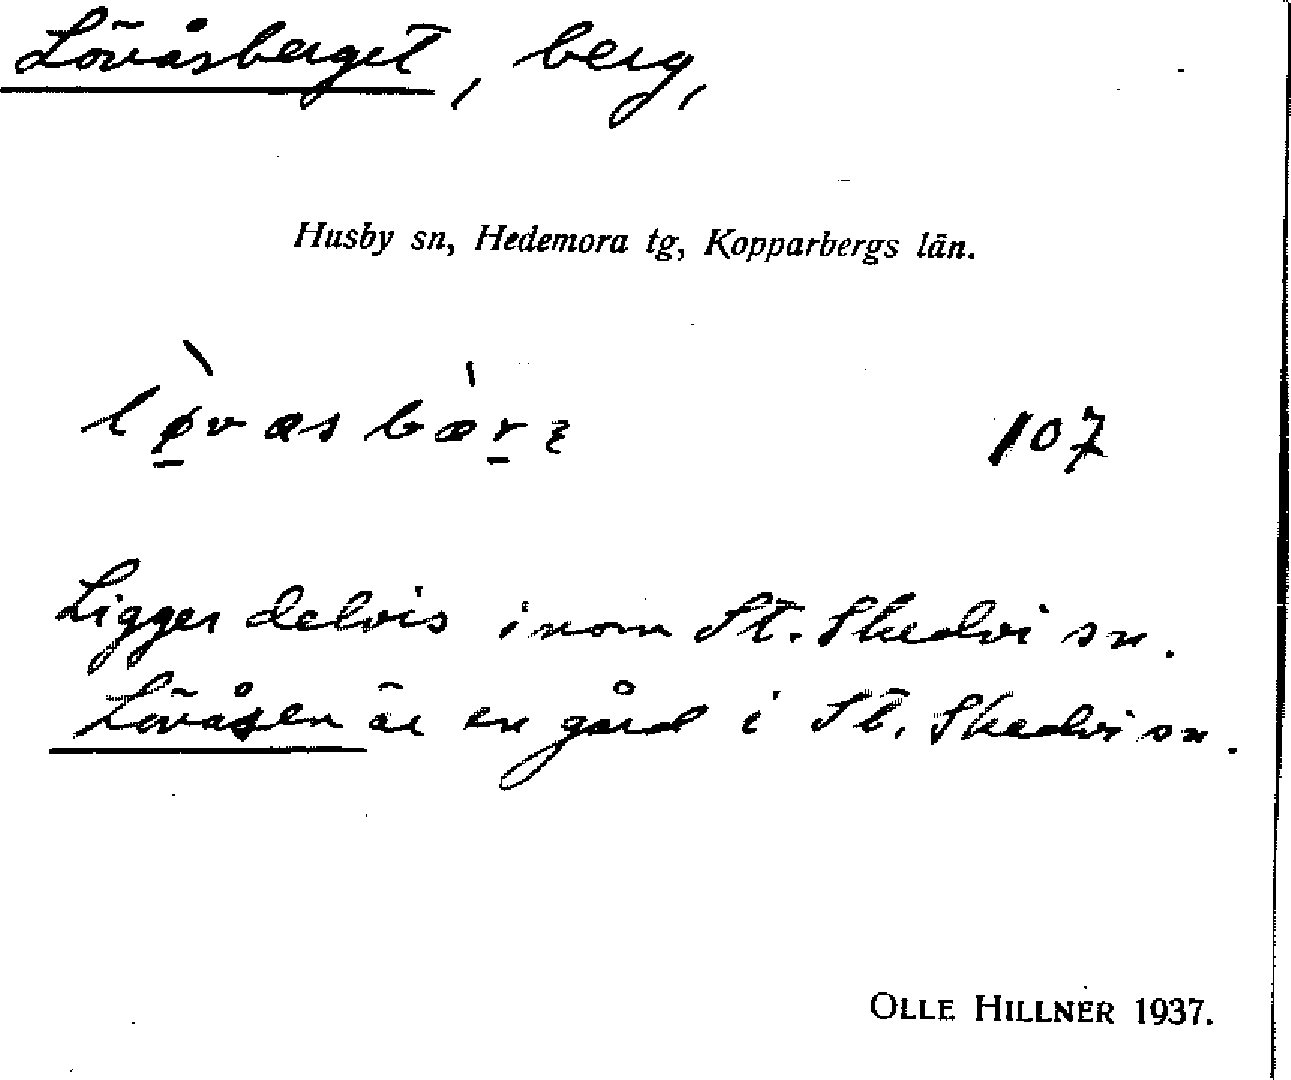 Lövåsberget, berg,
Husby sn, Hedemora tg, Kopparbergs län.
lø̱̀vasbæ̍ṟɛ 107
Ligger delvis inom St. Skedvi sn.
Lövåsen är en gård i St. Skedvi sn.
OLLE HILLNER 1937.